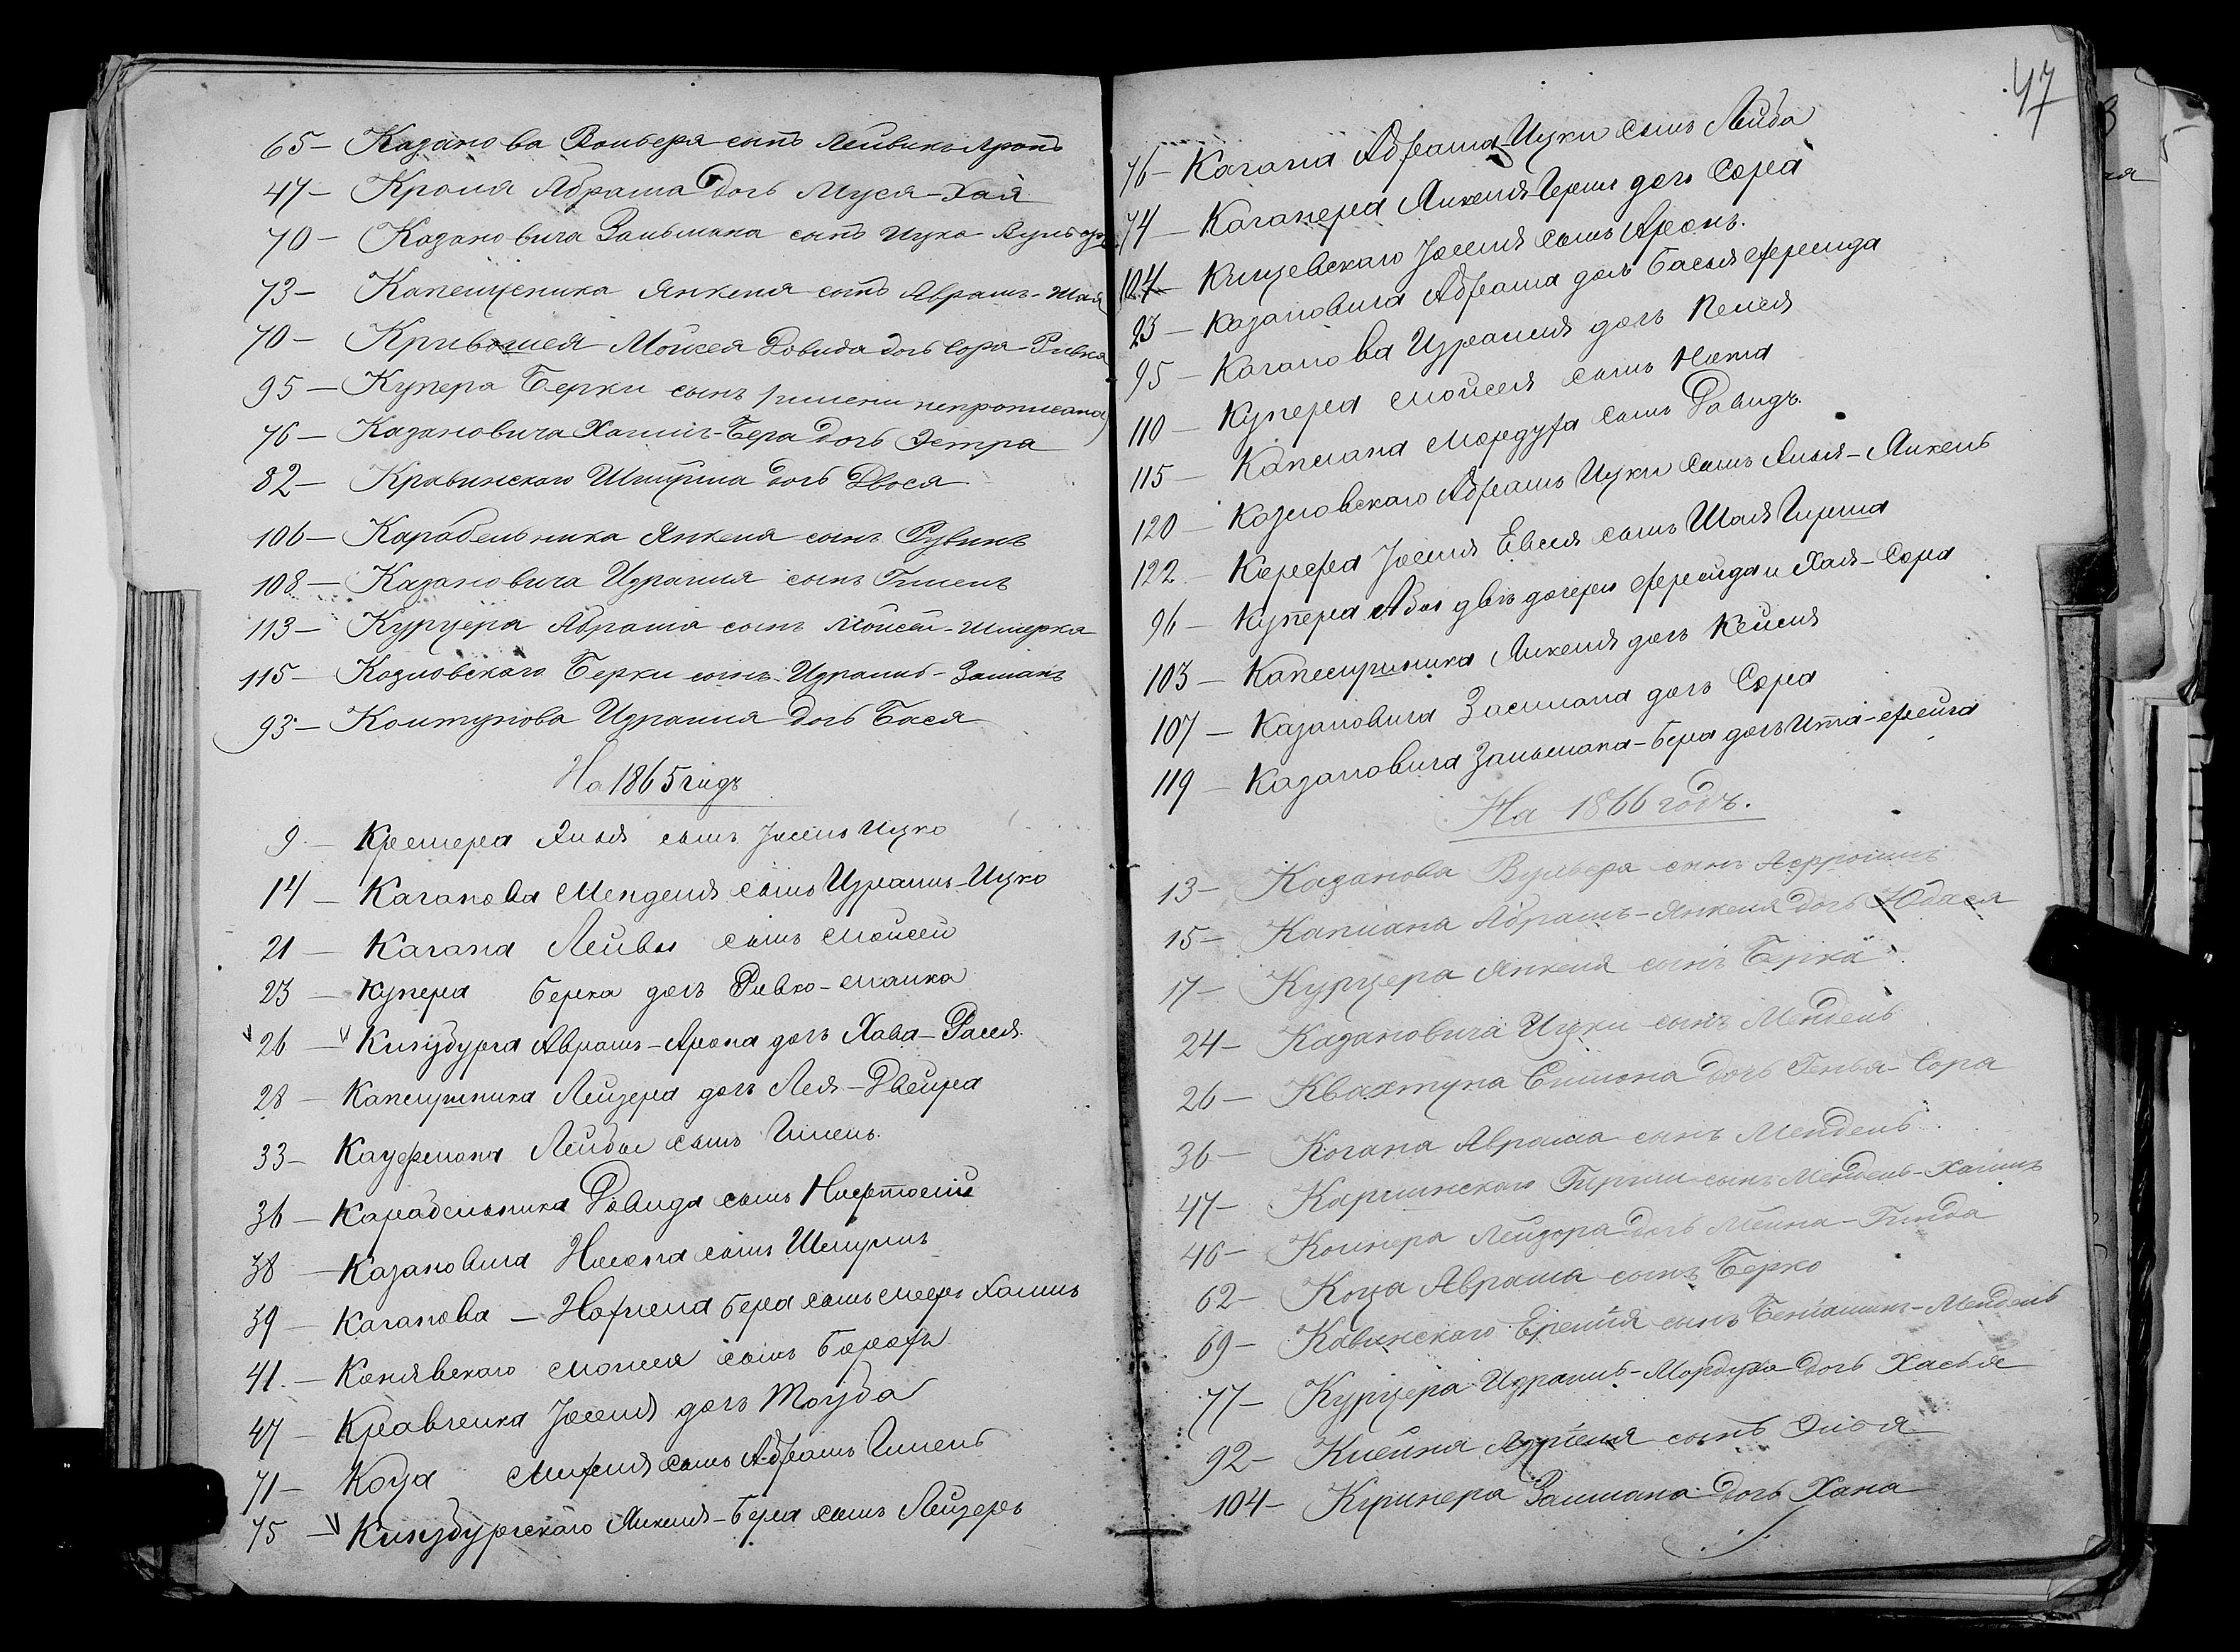 65 — Казанова Вольфа сынъ Лейвикъ Аронъ
47 — Кроля Абрама дочь Муся-Хая
70 — Казановича Зальмана сынъ Ицко-Вульф
73 — Капелушника Янкеля сынъ Аврамъ-Шая
70 — Кривошея Мойсея Довида дочь Сора-Ривка
95 — Купера Берки сынъ (имени непрописано)
76 — Казановича Хаимъ-Бера дочь Эстра
82 — Кравинскаго Шмуйла дочь Двося
106 — Карабельника Янкеля сынъ Рувинъ
108 — Казановича Израиля сынъ Гилель
113 — Курцера Абрама сынъ Мойсей-Шмерка
115 — Козловскаго Берки сынъ Израиль-Заманъ
93 — Колтунова Израиля дочь Бася
На 1865 годъ
9 — Кремера Эльи сынъ Іосель Ицко
14 — Каганова Менделя сынъ Израиль-Ицко
21 — Кагана Лейвы сынъ Мойсей
23 — Купера Берка дочь Ривко-Малка
26 — Кинзбурга Аврамъ-Арона дочь Хава-Рася
28 — Капелушника Лейзера дочь Лея-Двейра
33 — Кауфмана Лейбы сынъ Гилель
36 — Карабельника Давида сынъ Нафтолій
38 — Казановича Нисона сынъ Шмуилъ
39 — Каганова — Нохмена Бера сынъ Меер Хаимъ
41 — Конявскаго Моисея сынъ Борохъ
47 — Кравченка Іоселя дочь Тоуба
71 — Коца Михеля сынъ Абрамъ Гилель
75 — Кинзбургскаго Янкеля-Бера сынъ Лейзеръ
47
76 — Кагана Абрама-Ицки сынъ Лейба
74 — Каганера Янкеля Герша дочь Сора
104 — Клицевскаго Іоселя сынъ Аронъ
23 — Казановича Абрама дочь Бася Фрейда
95 — Каганова Израиля дочь Песя
110 — Купера Мойсея сынъ Нота
115 — Каплана Мордуха сынъ Давидъ
120 — Козловскаго Абрамъ Ицки сынъ Эля-Янкель
122 — Корфа Іоселя Евсея сынъ Шая Гирша
96 — Купера Абы двѣ дочери Фрейда и Хая-Сора
103 — Капелушника Янкеля дочь Кейля
107 — Казановича Заслмана дочь Сора
119 — Казановича Зальмана-Бера дочь Ита-Фейга
На 1866 годъ.
13 — Казанова Вульфа сынъ Афроимъ
15 — Каплана Абрамъ-Янкеля дочь Юдася
17 — Курцера Янкеля сынъ Берка
24 — Казановича Ицки сынъ Мендель
26 — Квахтуна Симона дочь Генья-Сора
36 — Когана Аврама сынъ Мендель
47 — Карлинскаго Гирши сынъ Мендель-Хаимъ
46 — Колкера Лейзора дочь Мейна-Гинда
62 — Коца Аврама сынъ Берко
69 — Ковинскаго Ереміи сынъ Беніаминъ-Мендель
77 — Курцера Израиль-Мордуха дочь Хасья
92 — Клейна Азріеля сынъ Элья
104 — Кушнера Залмана дочь Хана